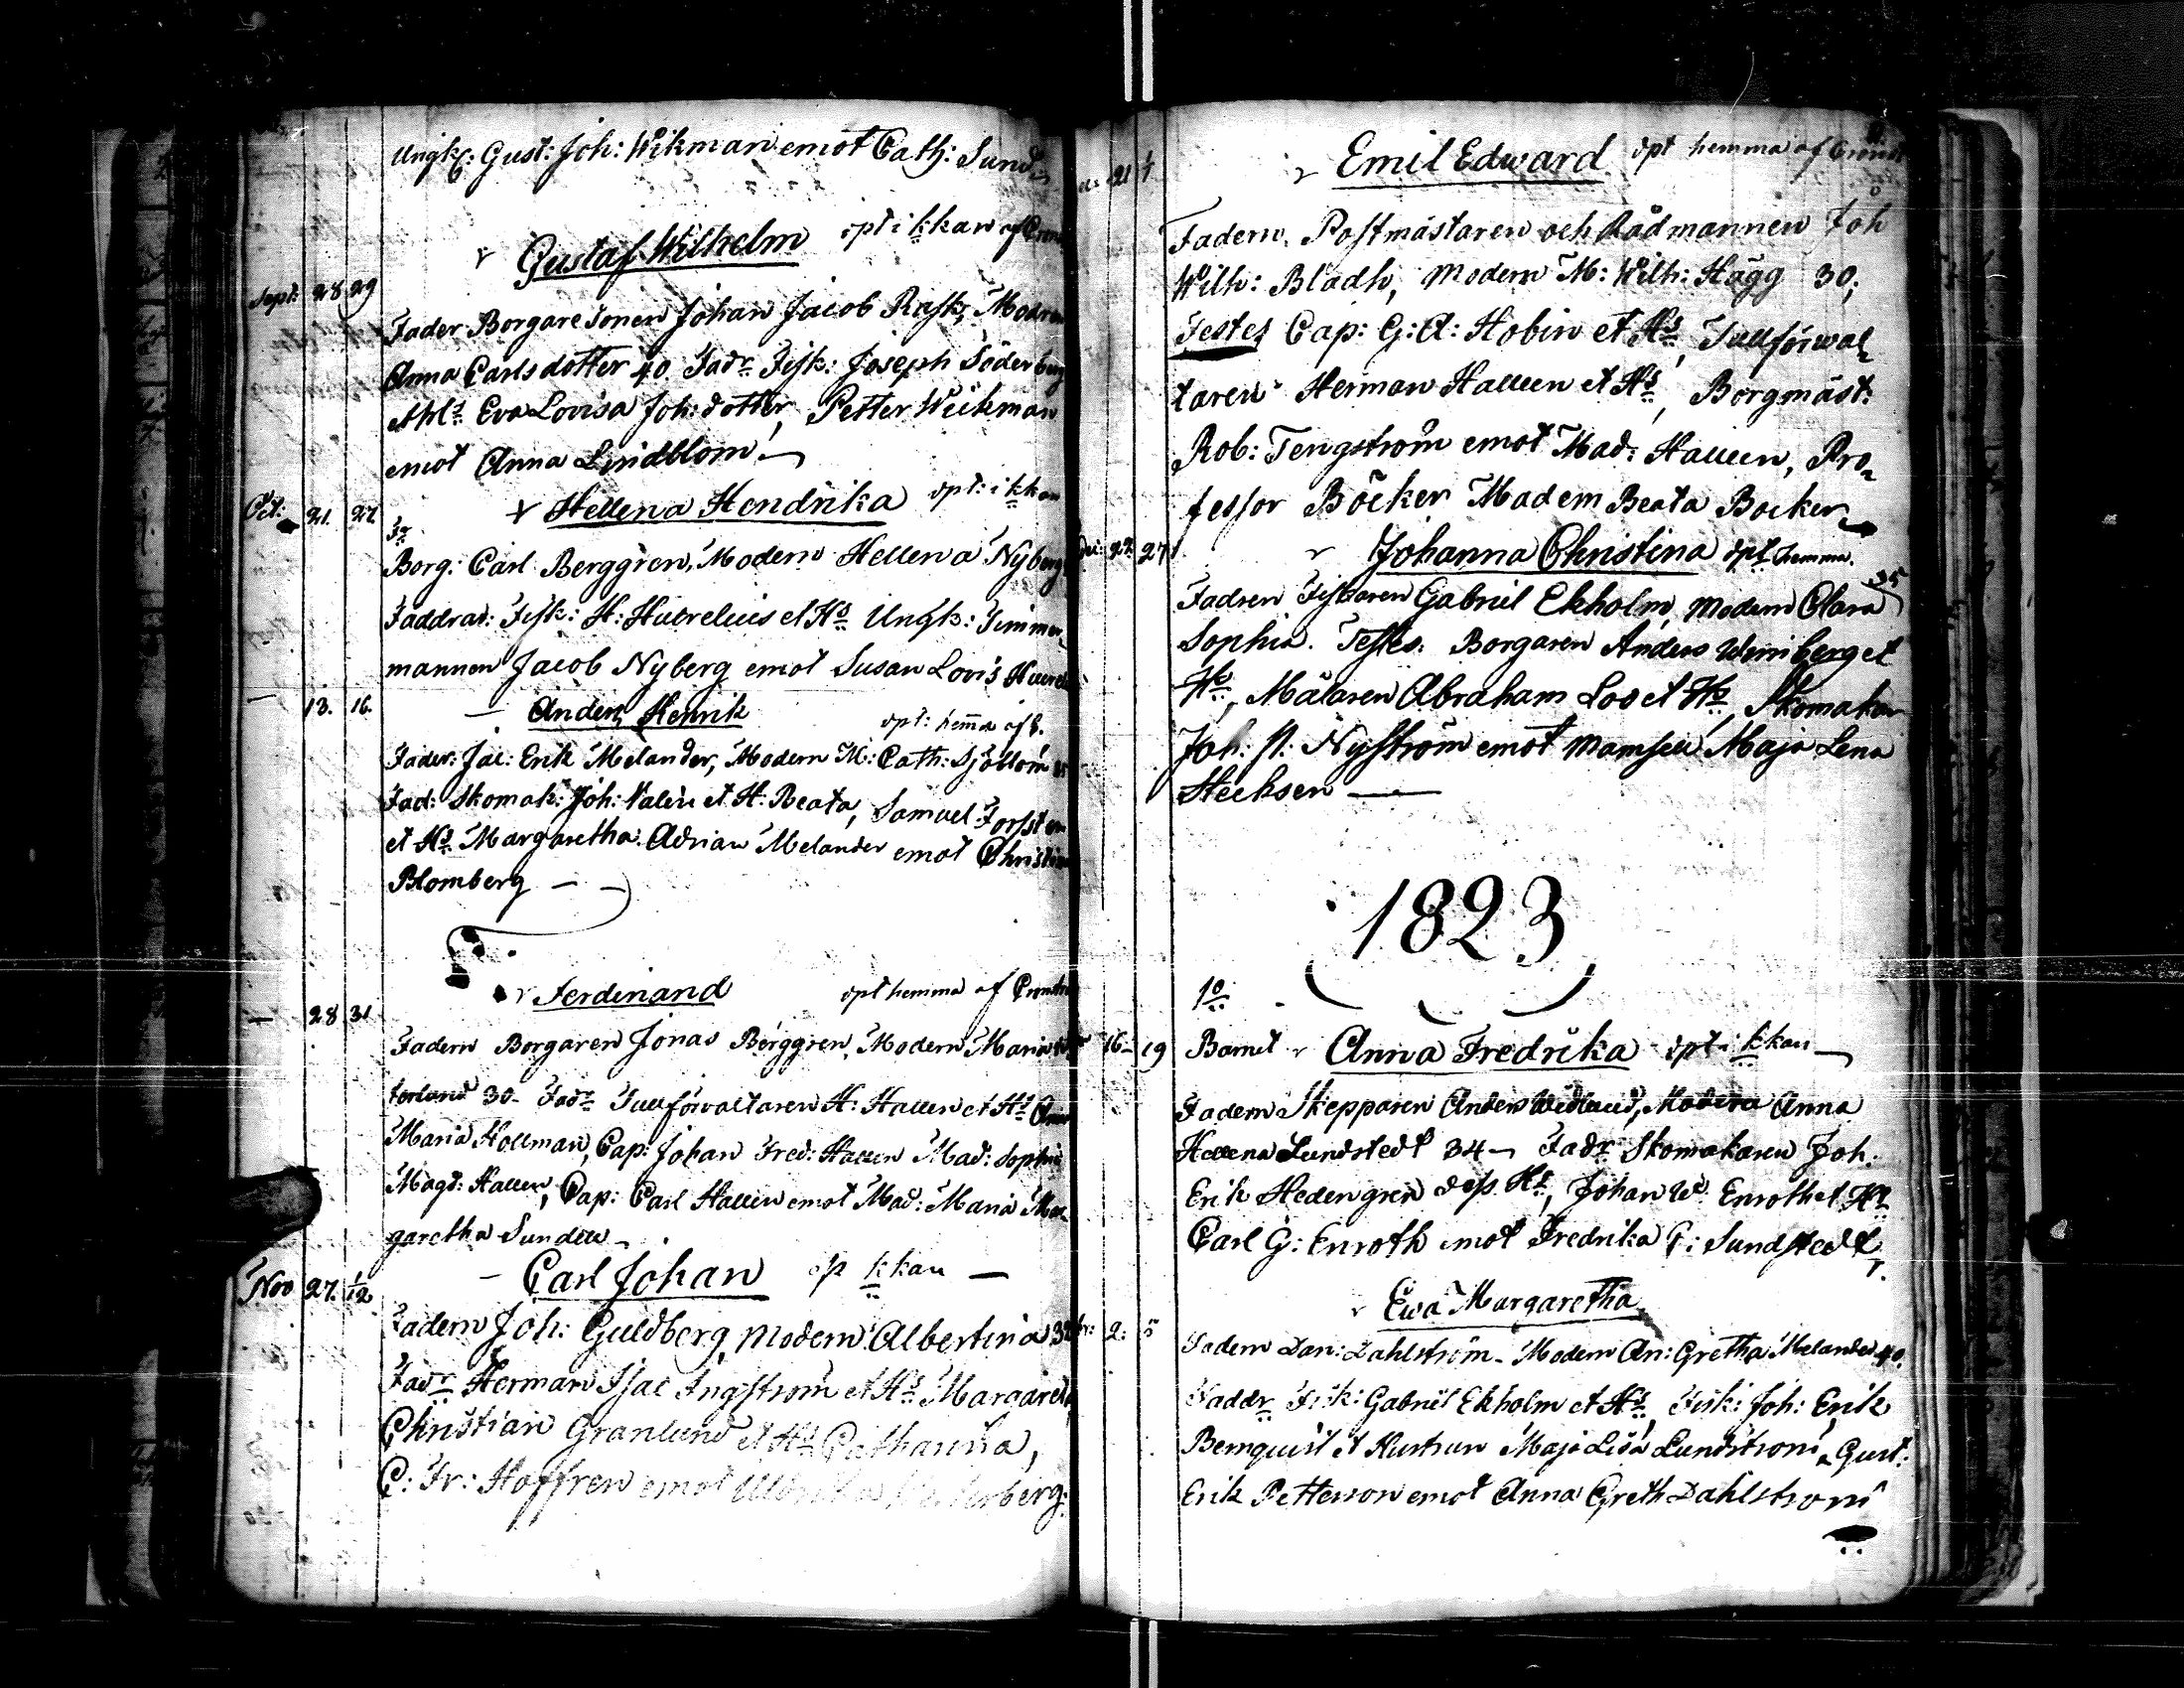 Ungk: Gust: Joh: Wikman emot Cath: Sund
Gustaf Wilhelm opt i kkan af Cron
Sept: 28 29
Fader Borgare Sonen Johan Jacob Rask, Modren
Anna Carlsdotter 40. Fadr Fisk: Joseph Söderberg
Eva Lovisa Joh: dotter, Petter Wikman
emot Anna Lindblom
Oct: 21. 27. Hellena Hendrika opt: i kkan
Fr
Borg: Carl Berggren, Modern Hellena Nyberg
Faddrar: Fisk: H: et Hs Ungk: Timmer
mannen Jacob Nyberg emot Susan Lovis
— 13. 16. — Anders Henrik opt: hemma af
Fader: Jac: Erik Melander, Modern M: Cath: Sjöblom
Fad: Skomak: Joh: Valin et H: Beata, Samuel Forsst
et Hs Margaretha. Adrian Melander emot Christin
Blomberg —
Ferdinand opt hemma af
— 28 31
Fadern Borgaren Jonas Berggren, Modern Maria
terlund 30. Fadr Tullförvaltaren H: Hallen et Hs
Maria Hollman, Cap: Johan Fred: Hallen Mad: Sophia
Magd: Hallen, Cap: Carl Hallen emot Mad: Maria Mar
garetha Sundell
— Carl Johan op kkan —
Nov 27. 1/12
Fadern Joh: Guldberg, Modern Albertina 32
Fadr Herman Isac Ingström et Hs Margareta,
Christian Granlund et Hs Catharina,
C: Fr: Hoffren emot
21 1/1 Emil Edward opt hemma af Cronst
Fadern, Postmästaren och Rådmannen Joh
Wilh: Bladh, Modern M: Wilh: Hägg 30;
Testes Cap: G: A: Hobin et Hs, Tullförwal
taren Herman Hallen et Hs, Borgmäst:
Rob: Tengström emot Mad: Hallen, Pro
fessor Böcker Madem Beata Bocker
22 27 Johanna Christina opt hemma.
Fadren Fiskaren Gabriel Ekholm, Modern Clara 35
Sophia. Testes. Borgaren Anders et
Hs, Målaren Abraham Loo et Hs, Skomakar
Joh: Nyström emot Mamsell Maja Lena
—
1823
1o
16 19 Barnet Anna Fredrika opt i kkan —
Fadern Skepparen Anders Modern Anna
Hellena Lundstedt 34 Fadr Skomakaren Joh.
Erik Hedengren dess Hs, Johan Enroth et Hs
Carl G: Enroth emot Fredrika Sundstedt
Ewa Margaretha
2: 5
Fadern Dan: Dahlström Modern An: Gretha Melander 40.
Faddr Fisk: Gabriel Ekholm et Hs, Fisk: Joh: Erik
Bernquist et Hustrun Maja Lisa Lundström, Gust:
Erik Petterson emot Anna Greth Dahlstrom